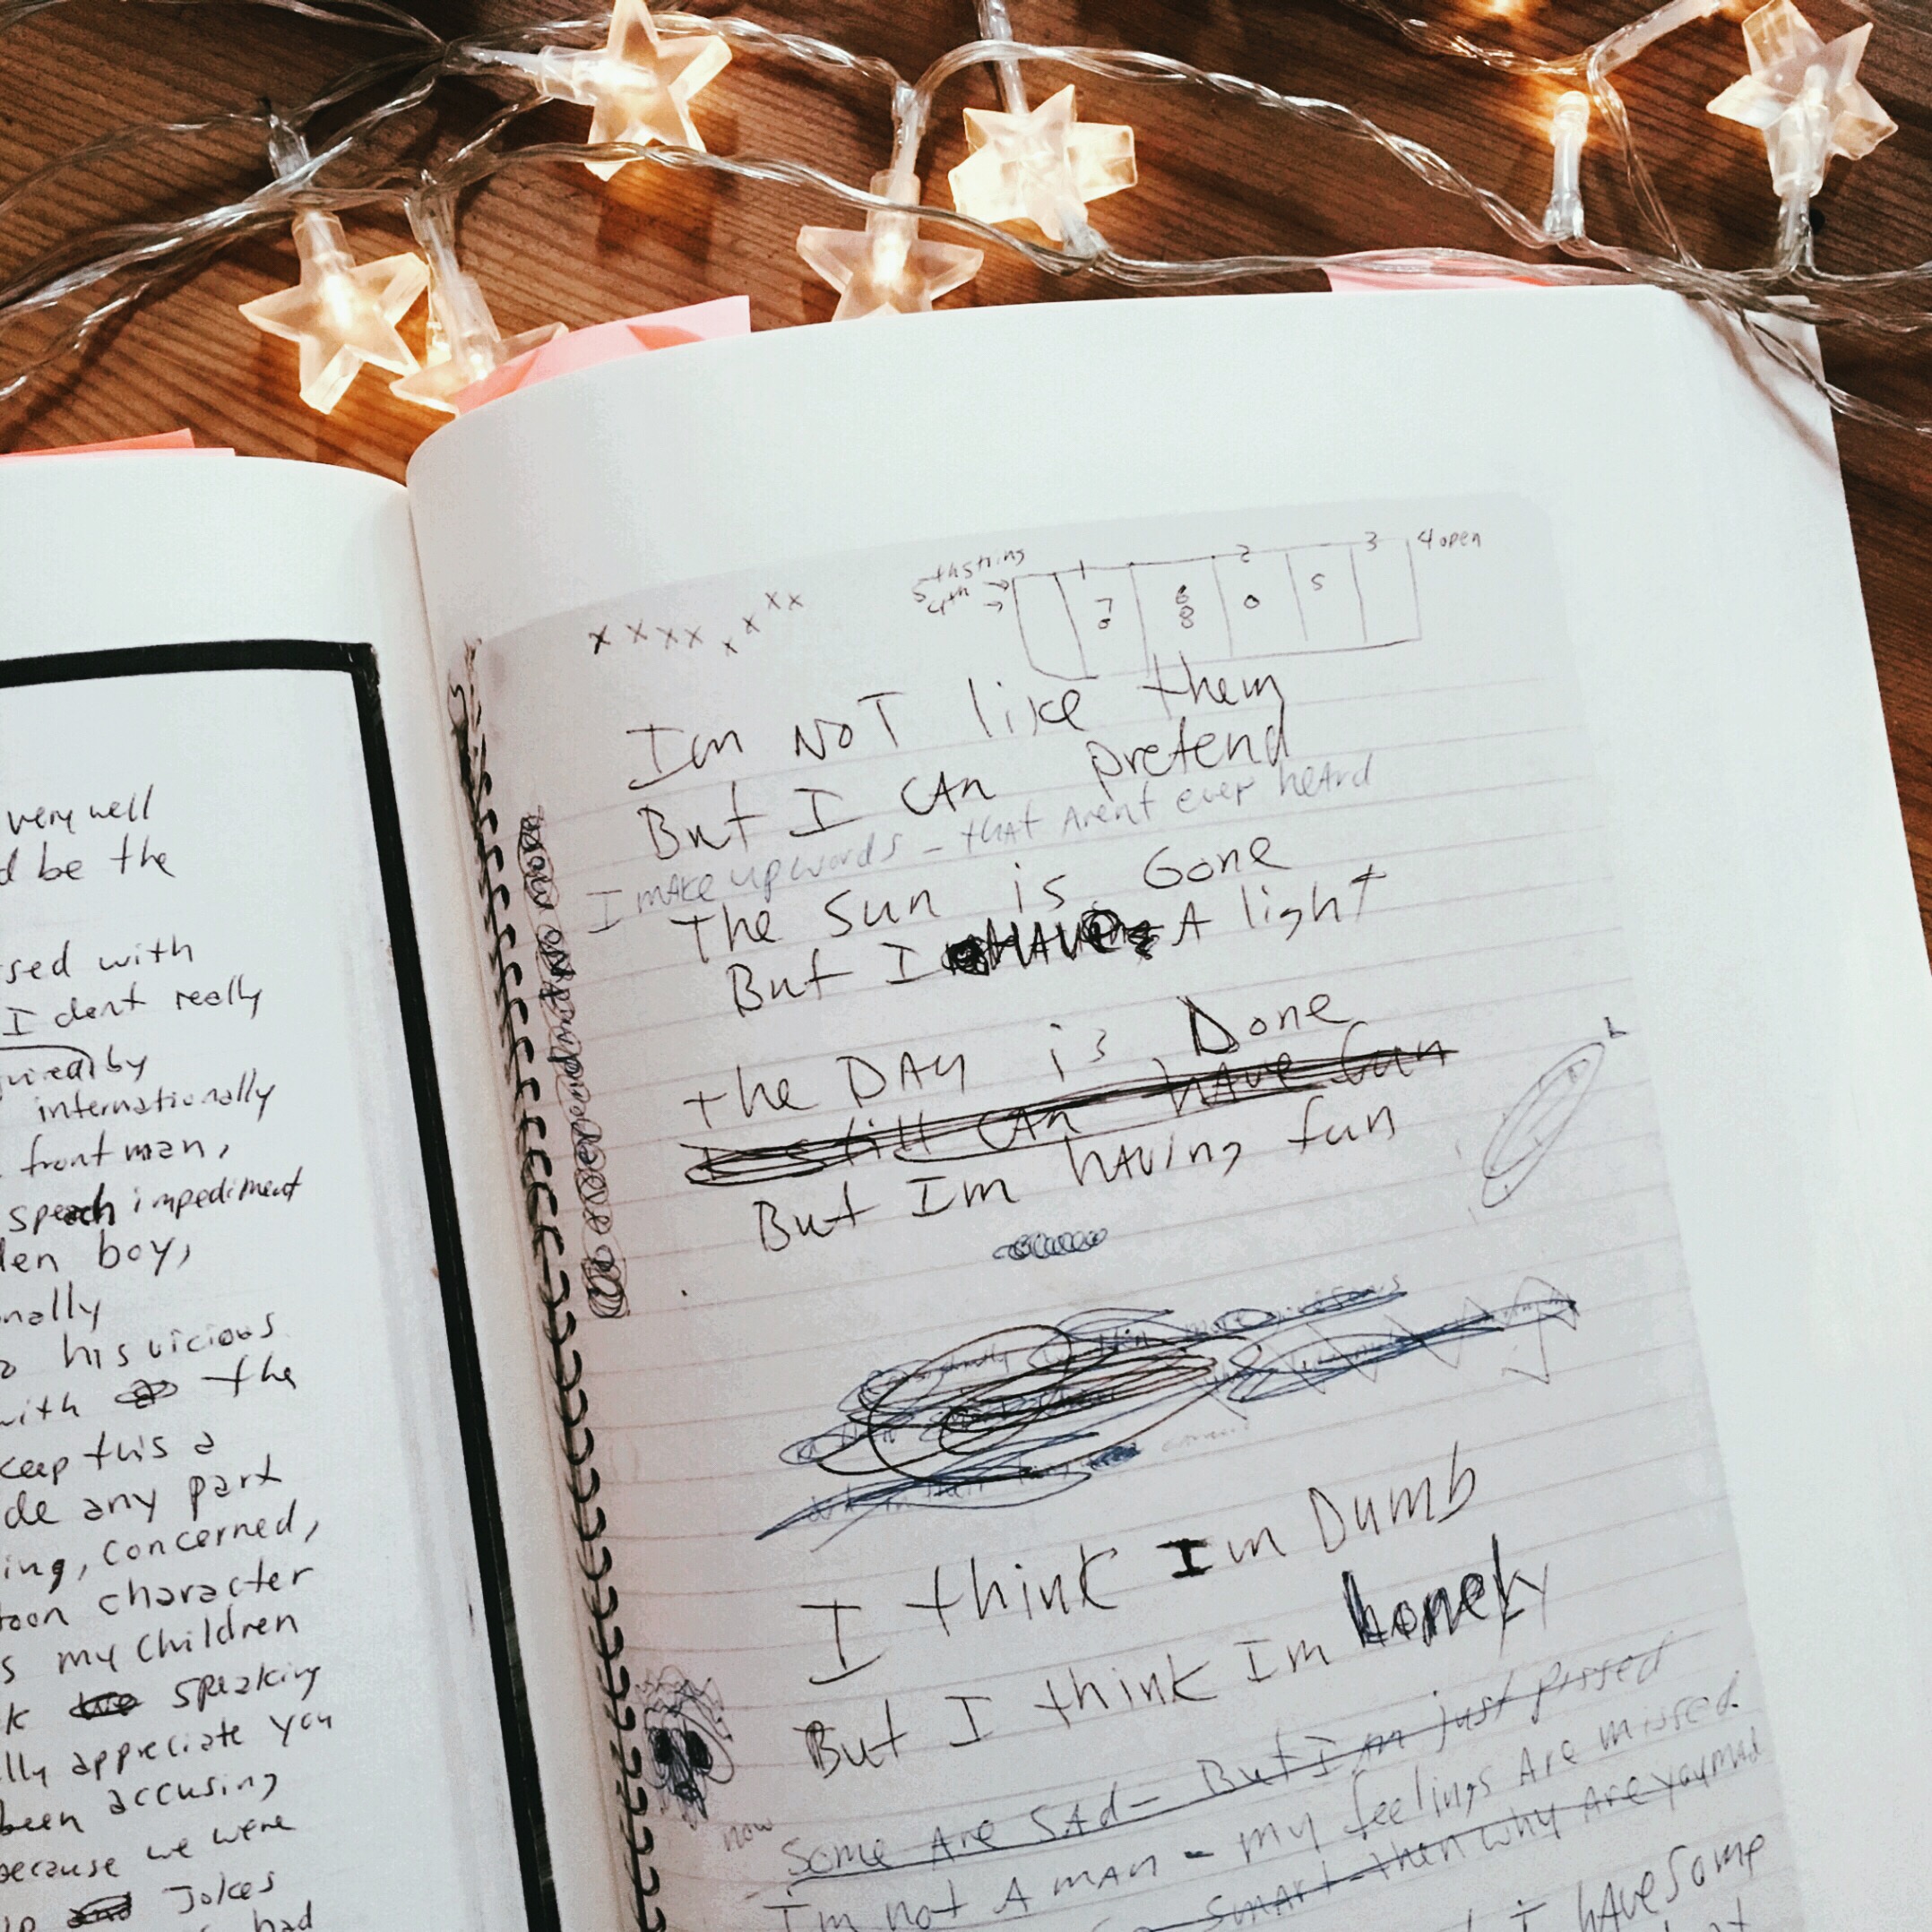 very well
d be the
ssed with
I dont really
uired by
internationally
front man,
speech impediment
den boy,
nally
his vicious
with the
keep this a
de any part
ing, concerned,
toon character
s my children
k we speaking
lly appreciate you
been accusing
because we were
and Jokes
had
x x x x x x x x
5th string
4th
1 2 3 4 open
7 6 5
0 8 0
Im NOT like them
But I CAn pretend
I mAke up words - thAt Arent ever heArd
the sun is Gone
But I HAVE A light
the DAy is Done
I still CAn hAve fun
But Im hAving fun
I think Im Dumb
But I think Im
now
Some Are SAd - But I Am just pissed
I'm not A mAn - my feelings Are missed
smArt then why Are you mAd
I hAve some